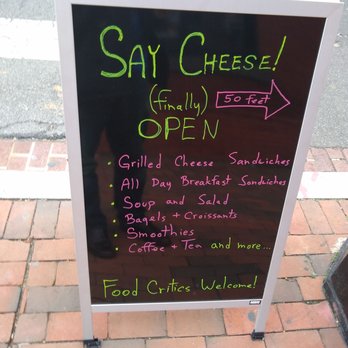 SAY CHEESE!
(finally) 50 feet
OPEN
• Grilled Cheese Sandwiches
• All Day Breakfast Sandwiches
• Soup and Salad
• Bagels + Croissants
• Smoothies
• Coffee + Tea and more...
Food Critics Welcome!